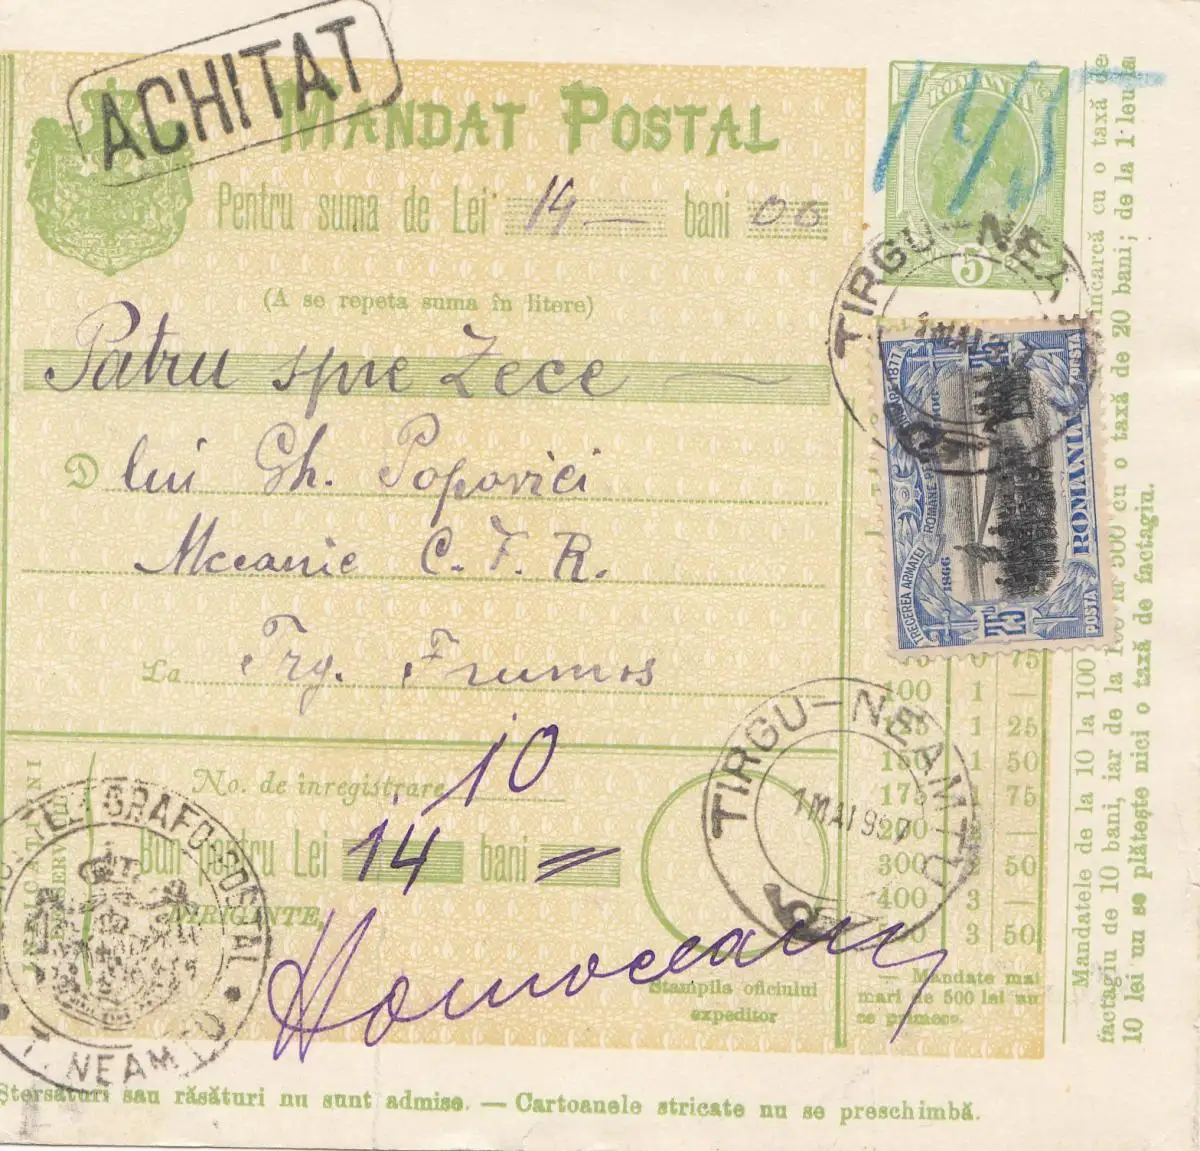 ACHITAT
MANDAT POSTAL
Pentru suma de Lei 14 — bani 00
(A se repeta suma în litere)
Patru spre Zece —
D lui Gh. Popovici
Mecanic C. F. R.
La Trg. Frumos
No. de înregistrare 10
Bun pentru Lei 14 bani =
DIRIGINTE,
Stampila oficiului
expeditor
ROMANIA
5
TIRGU-NEAMTU
1 MAI 907
TIRGU-NEAMTU
TRECEREA ARMATEI ROMANE
1866 1906
25 25
ROMANIA
POSTA POSTA
75
100 1 —
125 1 25
150 1 50
175 1 75
200
300 50
400 3 —
3 50
— Mandate mai
mari de 500 lei nu
se primesc.
Mandatele de la 10 la 100
încarcă cu o taxă de
factagiu de 10 bani, iar de la 100 la 500 cu o taxă de 20 bani; de la 1 leu la
10 lei nu se plătește nici o taxă de factagiu.
TELEGRAFO-POSTAL
T. NEAMTU
Ștersături sau răsături nu sunt admise. — Cartoanele stricate nu se preschimbă.